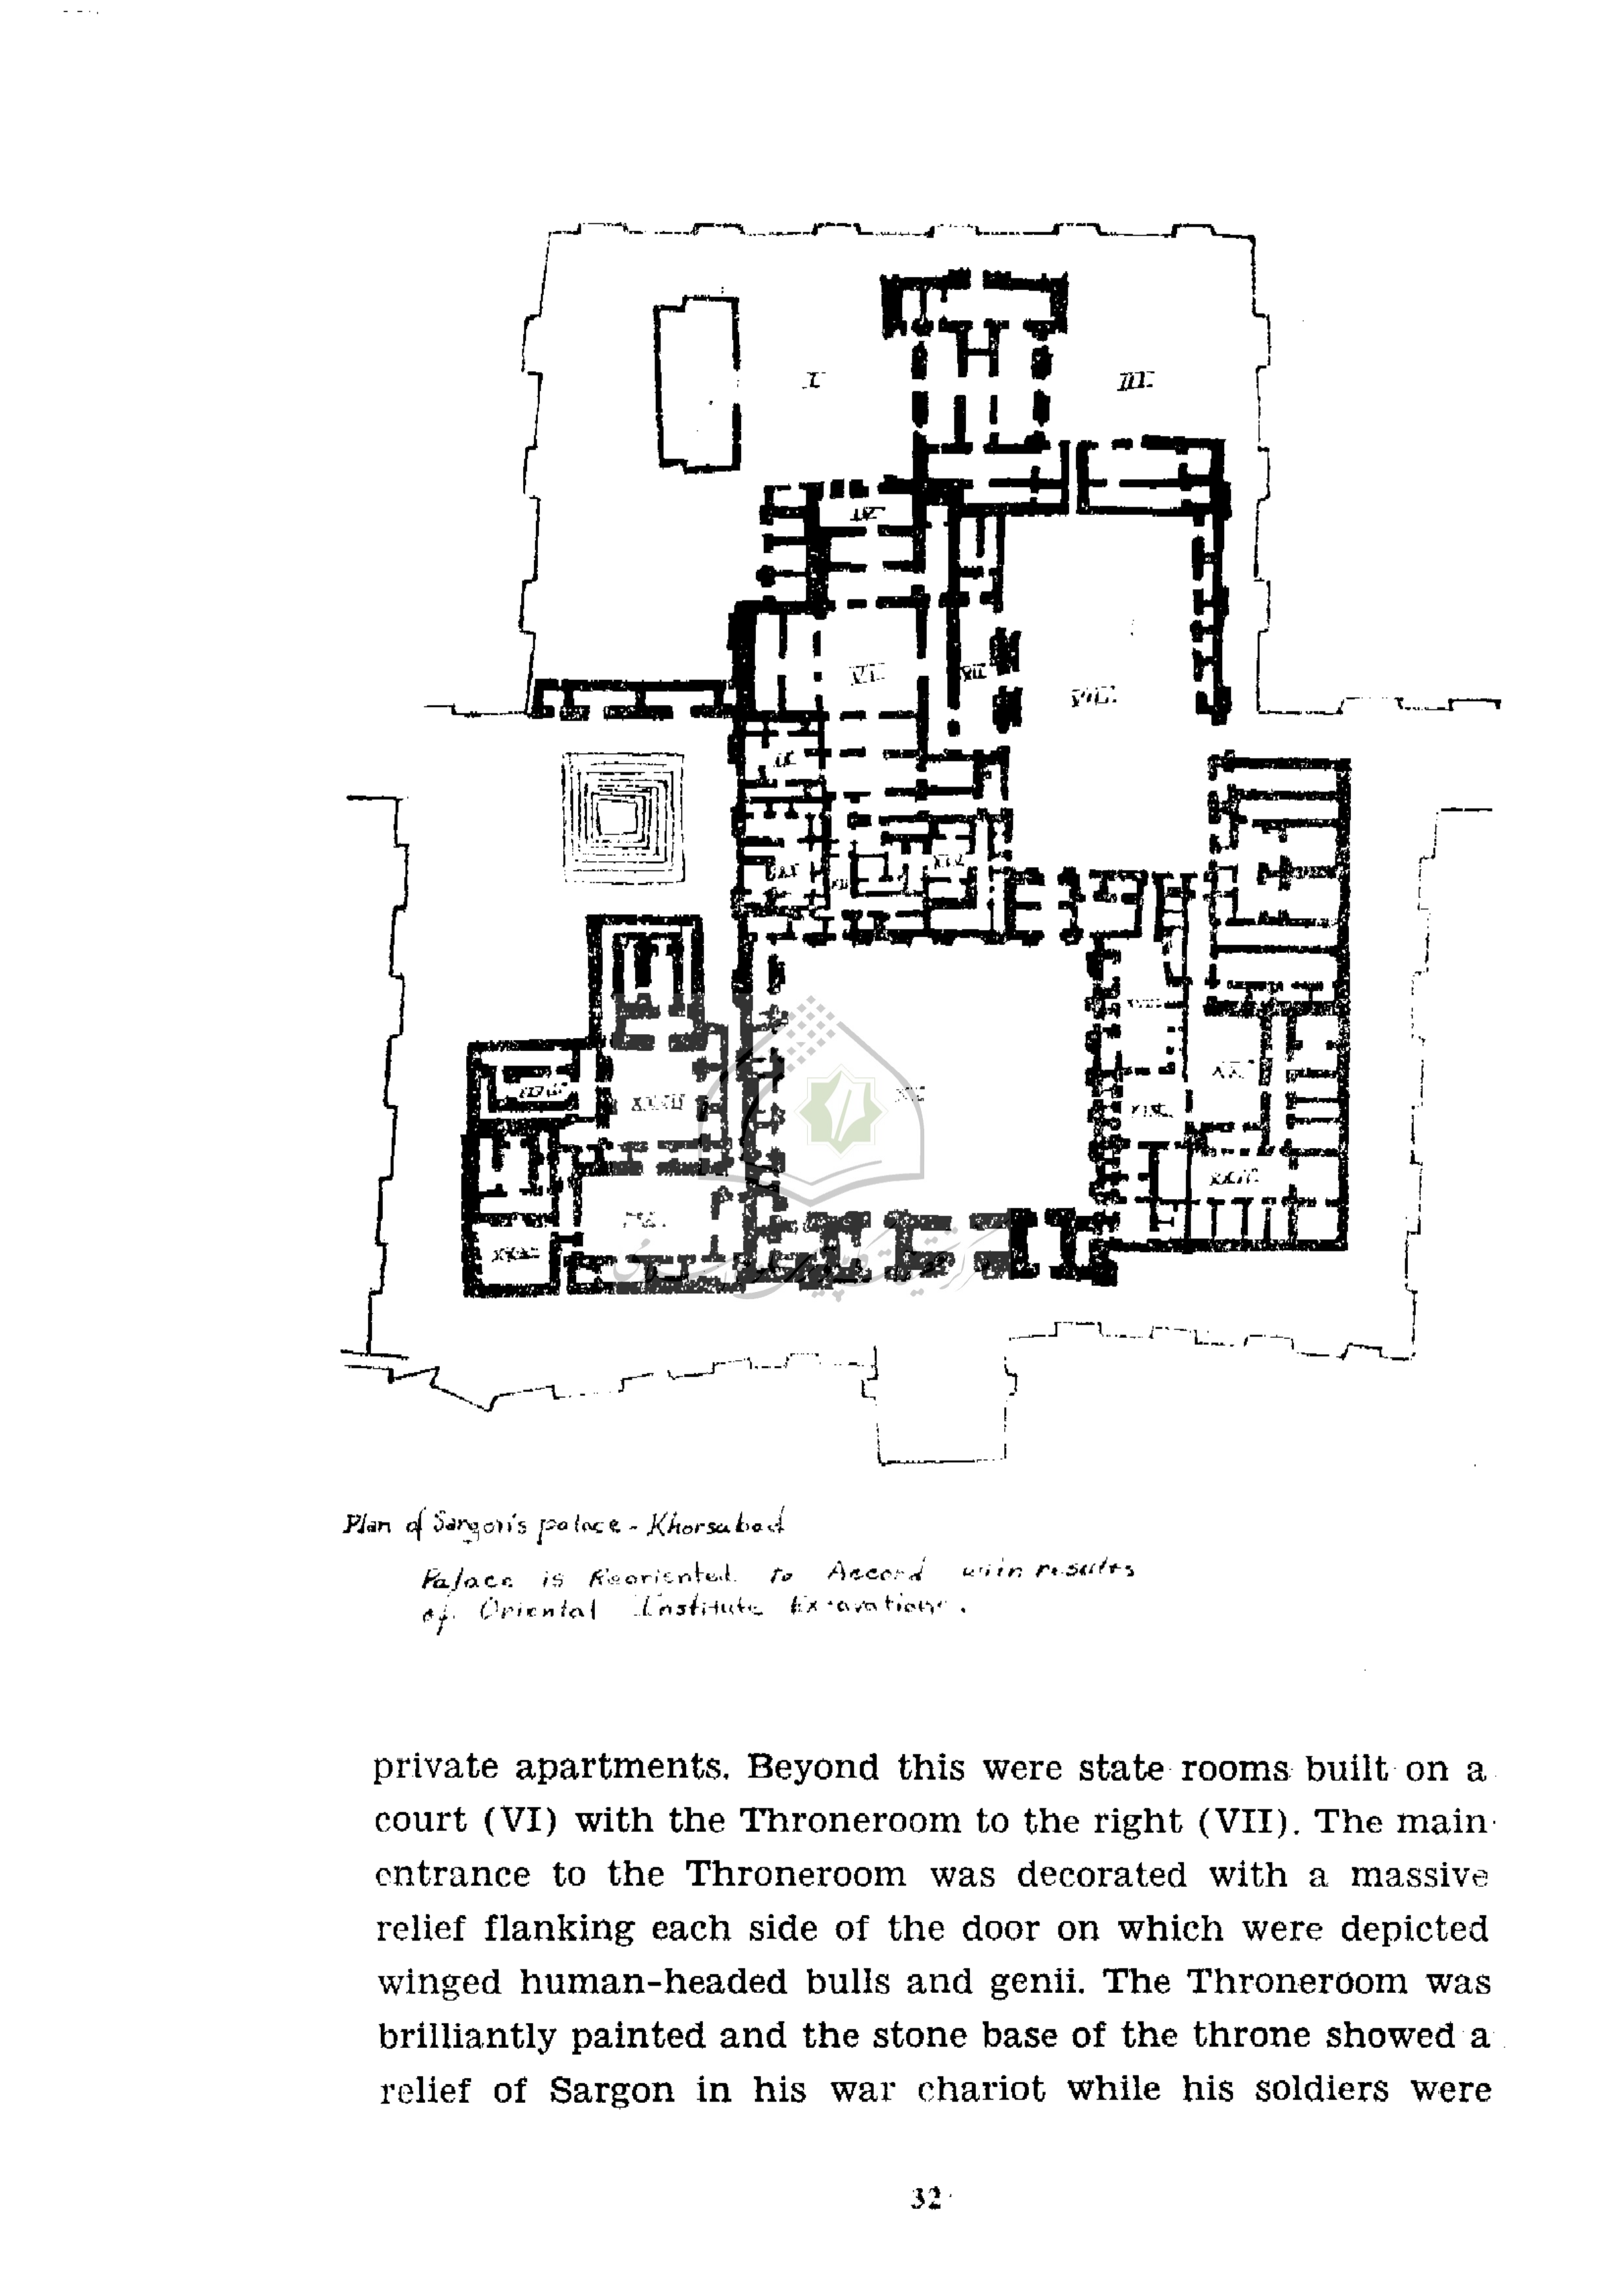 I
III
VI
VII
VIII
Plan of Sargon's palace - Khorsabad
Palace is Reoriented to Accord with results
of Oriental Institute Excavations.
private apartments. Beyond this were state rooms built on a
court (VI) with the Throneroom to the right (VII). The main
entrance to the Throneroom was decorated with a massive
relief flanking each side of the door on which were depicted
winged human-headed bulls and genii. The Throneroom was
brilliantly painted and the stone base of the throne showed a
relief of Sargon in his war chariot while his soldiers were
32